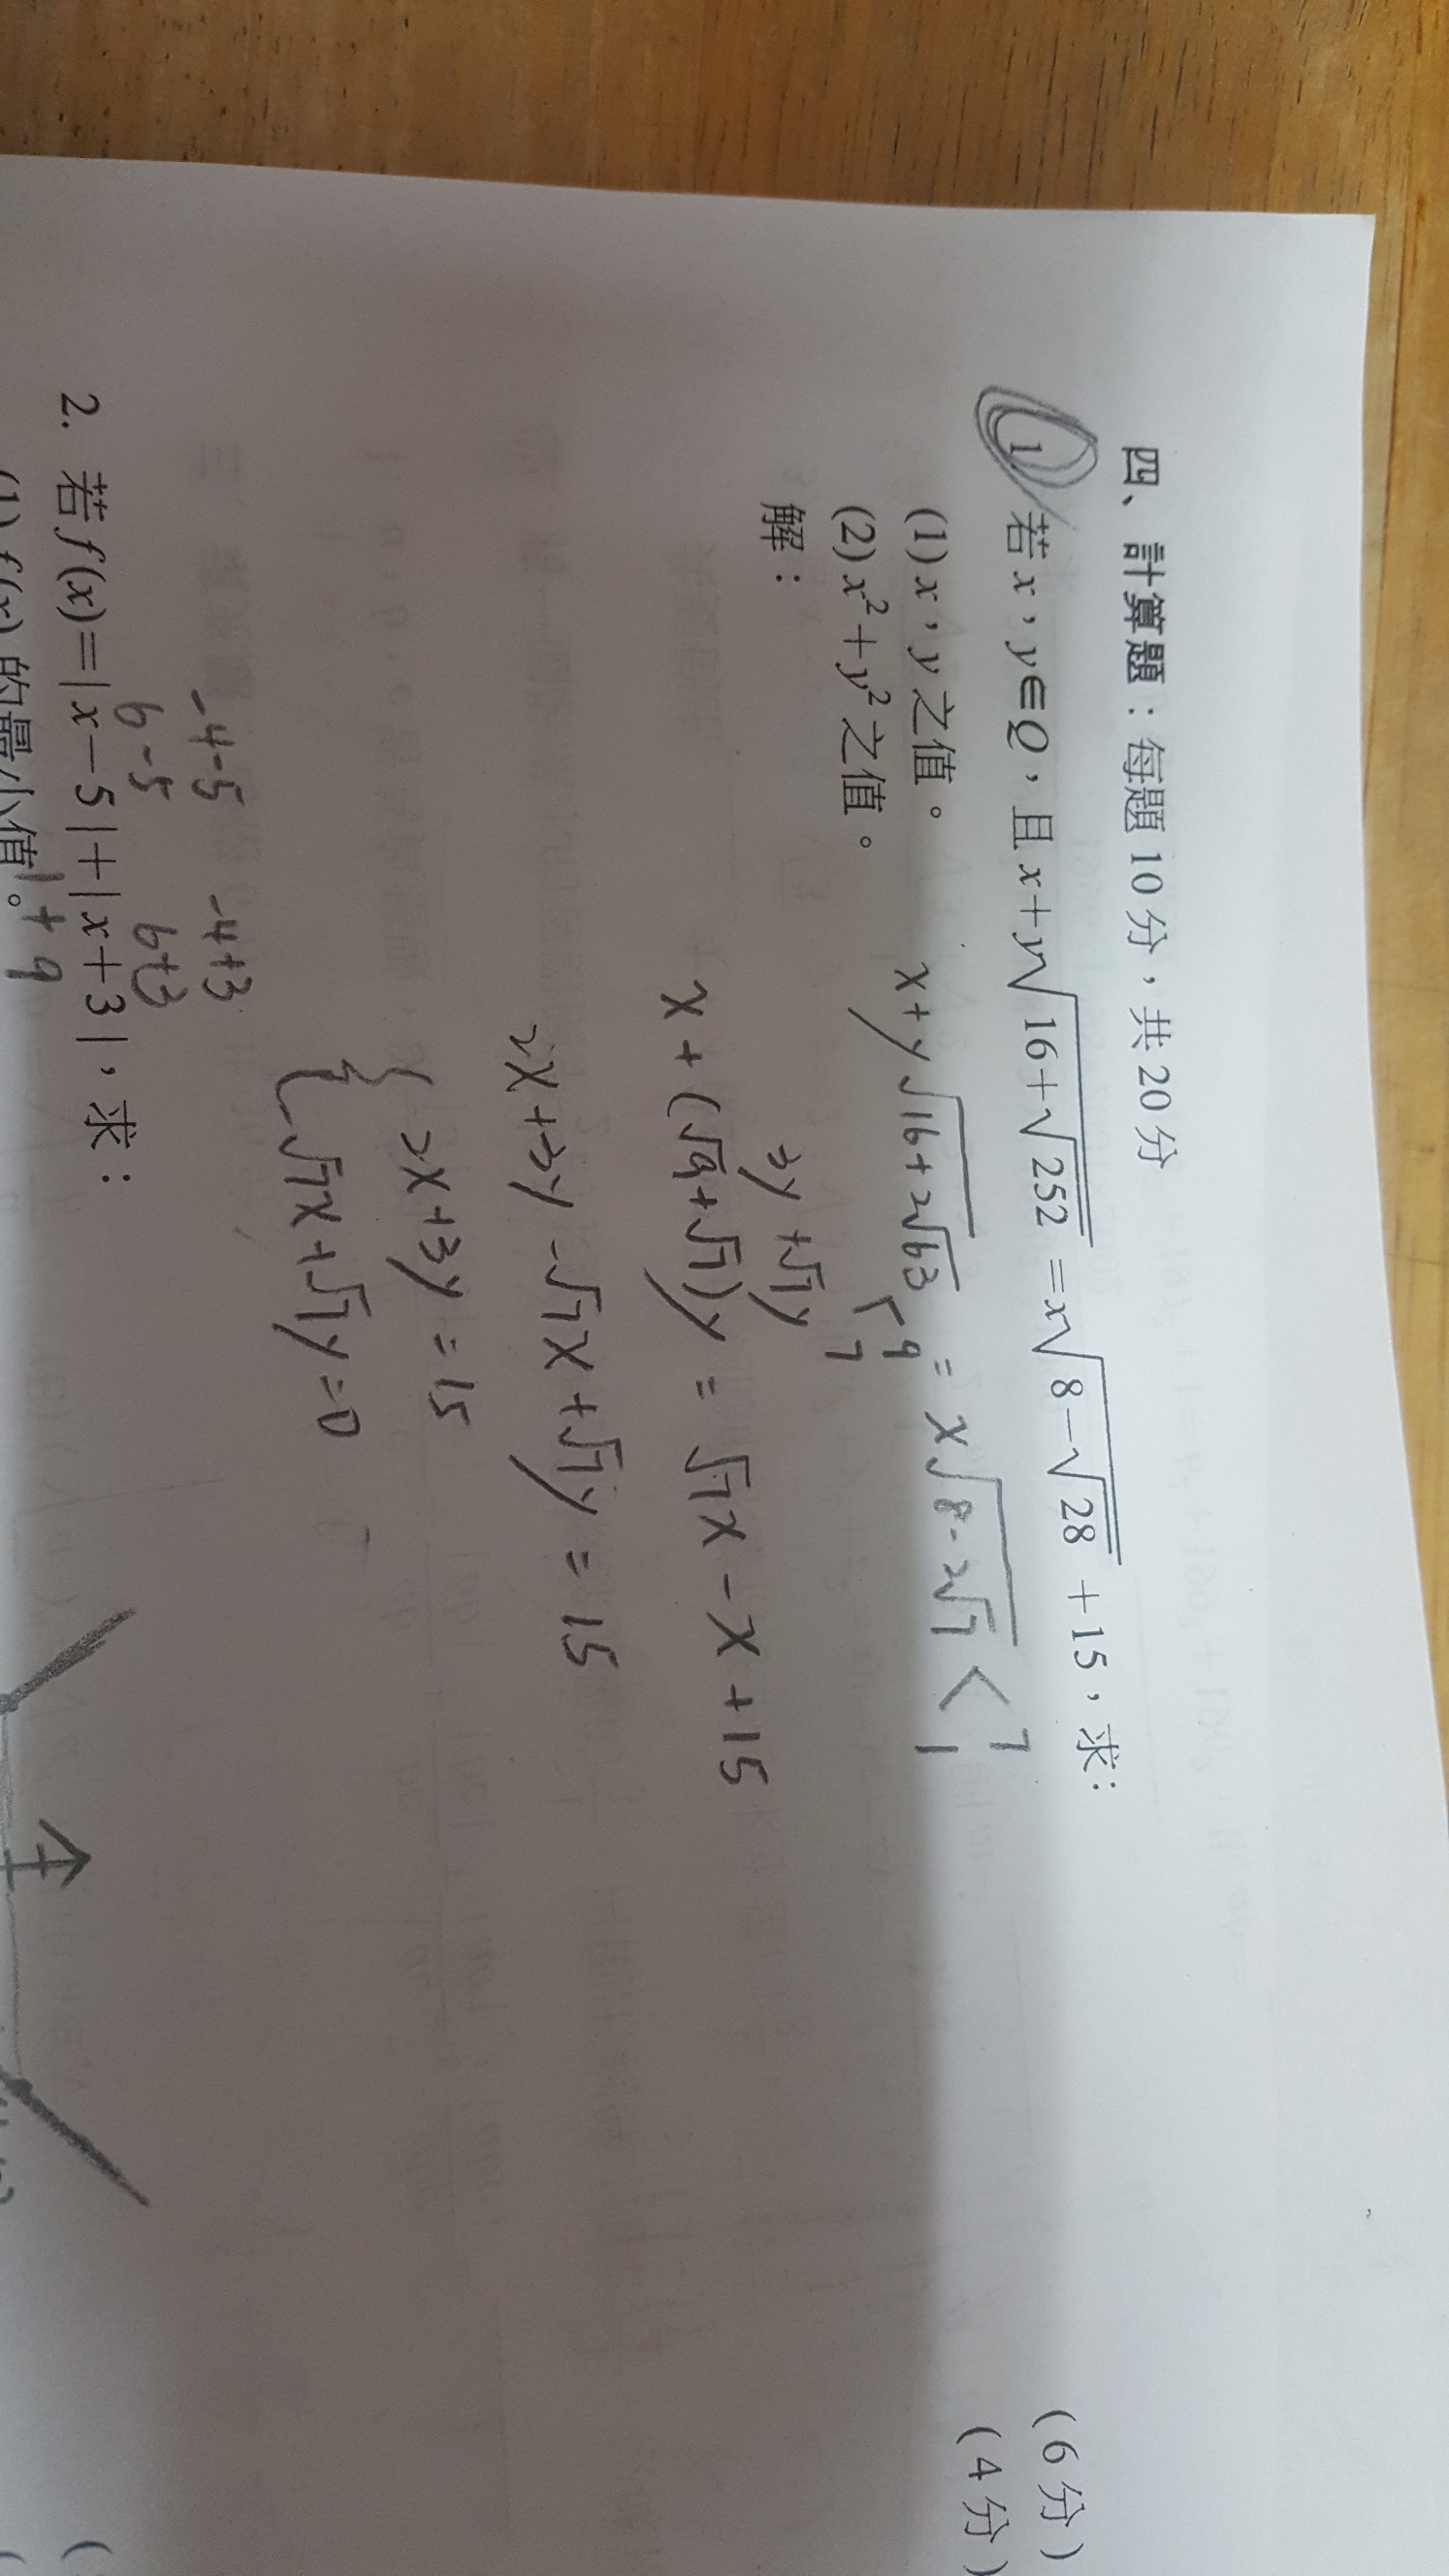 四、計算題：每題 10 分，共 20 分
1. 若 x，y∈Q，且 x+y√(16+√252) = x√(8−√28) +15，求：
(1) x，y 之值。 (6 分)
(2) x²+y² 之值。 (4 分)
解：
x+y√(16+2√63) = x√(8-2√7) < 7 1
< 9 7
3y +√7y
x + (√9+√7)y = √7x - x +15
2x +3y -√7x +√7y = 15
{ 2x +3y = 15
-√7x +√7y = 0
-4-5 -4+3
6-5 6+3
2. 若 f(x)=|x−5|+|x+3|，求：
1+9
(1) f(x) 的最小值。